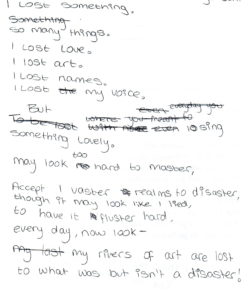 I lost something.
Something
so many things.
I lost love.
I lost art.
I lost names.
I lost the my voice.
But even everyday you
To be lost where you meant to
with even losing
something lovely.
too
may look hard to master,
Accept I vaster realms to disaster,
though it may look like I lied,
to have it fluster hard.
every day, now look –
My lost my rivers of art are lost
to what was but isn't a disaster!